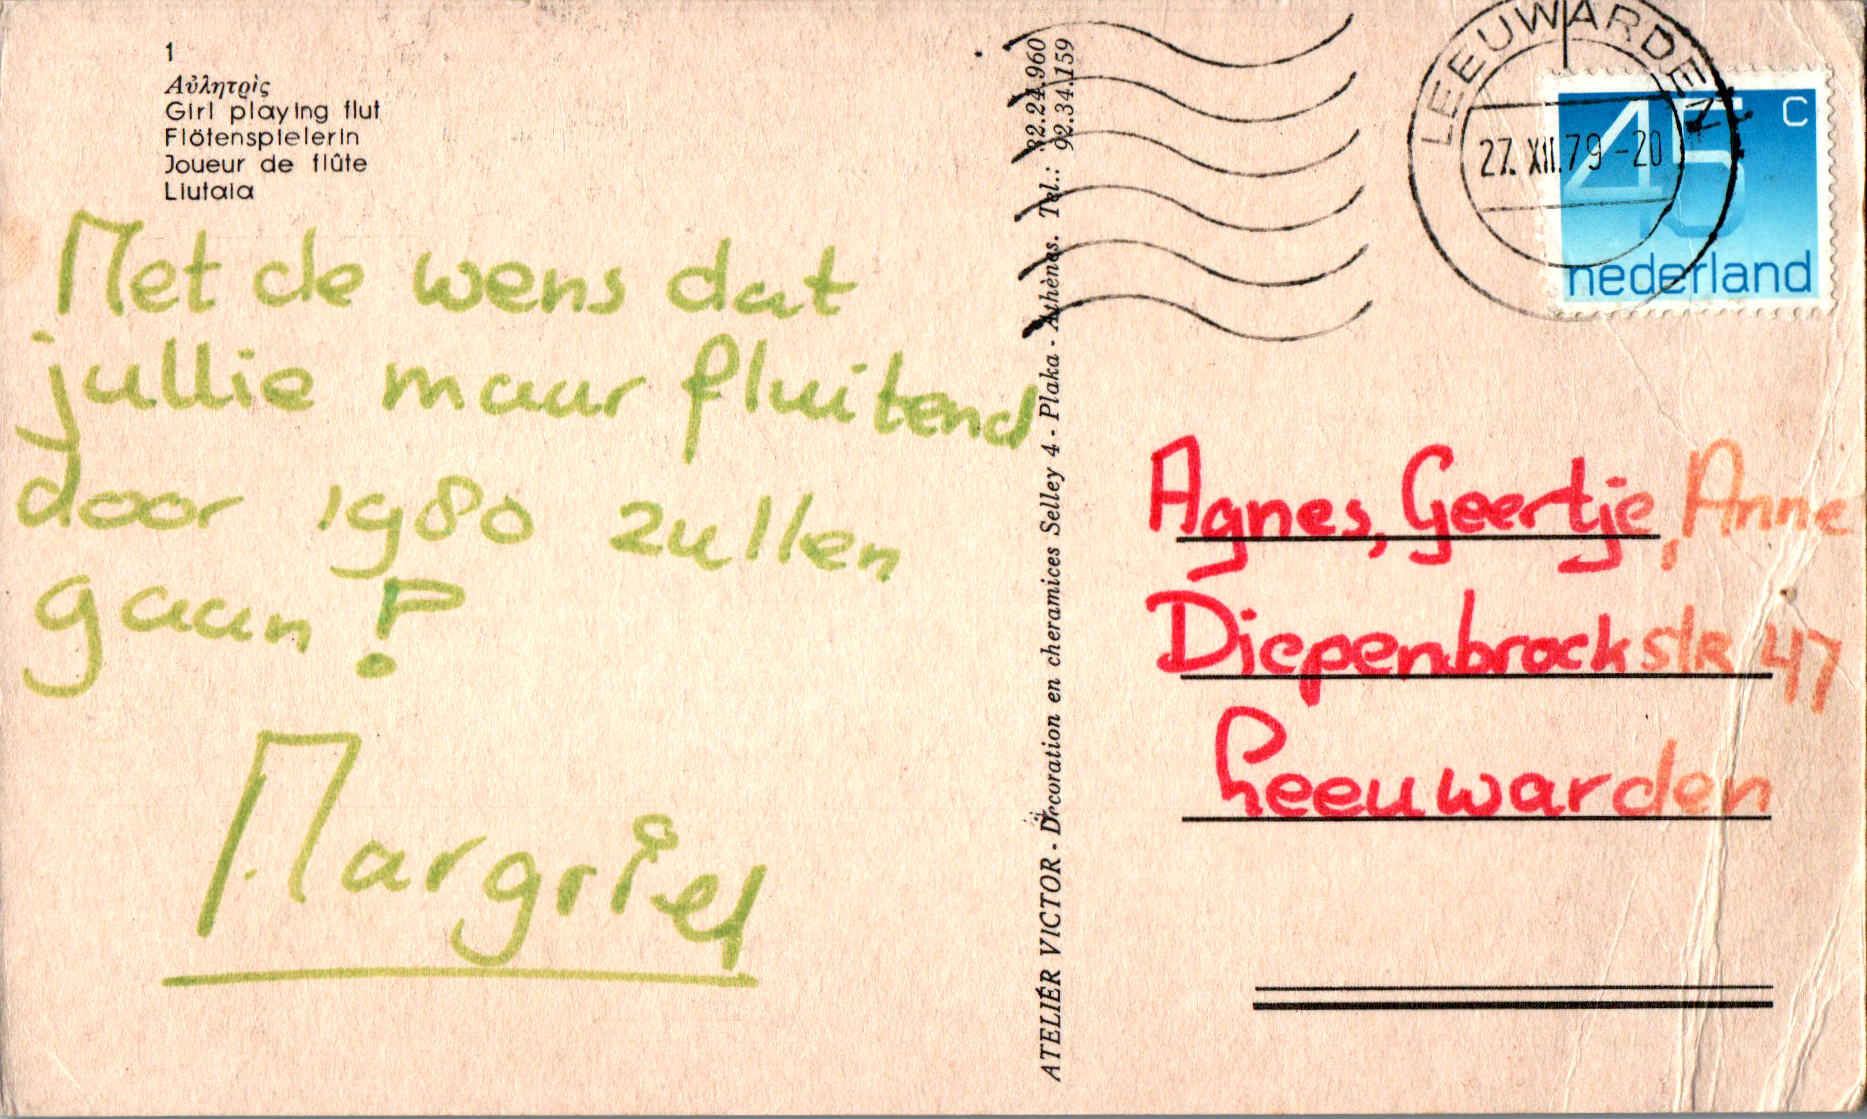 1
Αὐλητρὶς
Girl playing flut
Flötenspielerin
Joueur de flûte
Liutaia
Met de wens dat
jullie maar fluitend
door 1980 zullen
gaan!
Margriet
ATELIER VICTOR - Decoration en cheramices Selley 4 - Plaka - Athènes. Tel.: 32.24.960
92.34.159
LEEUWARDEN
27.XII.79-20
45 c
nederland
Agnes, Geertje, Anne
Diepenbrockstr 47
Leeuwarden